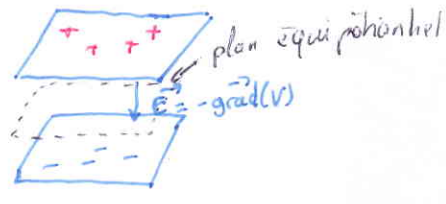 + + + +
plan équipotentiel
E = -grad(V)
- - - - -